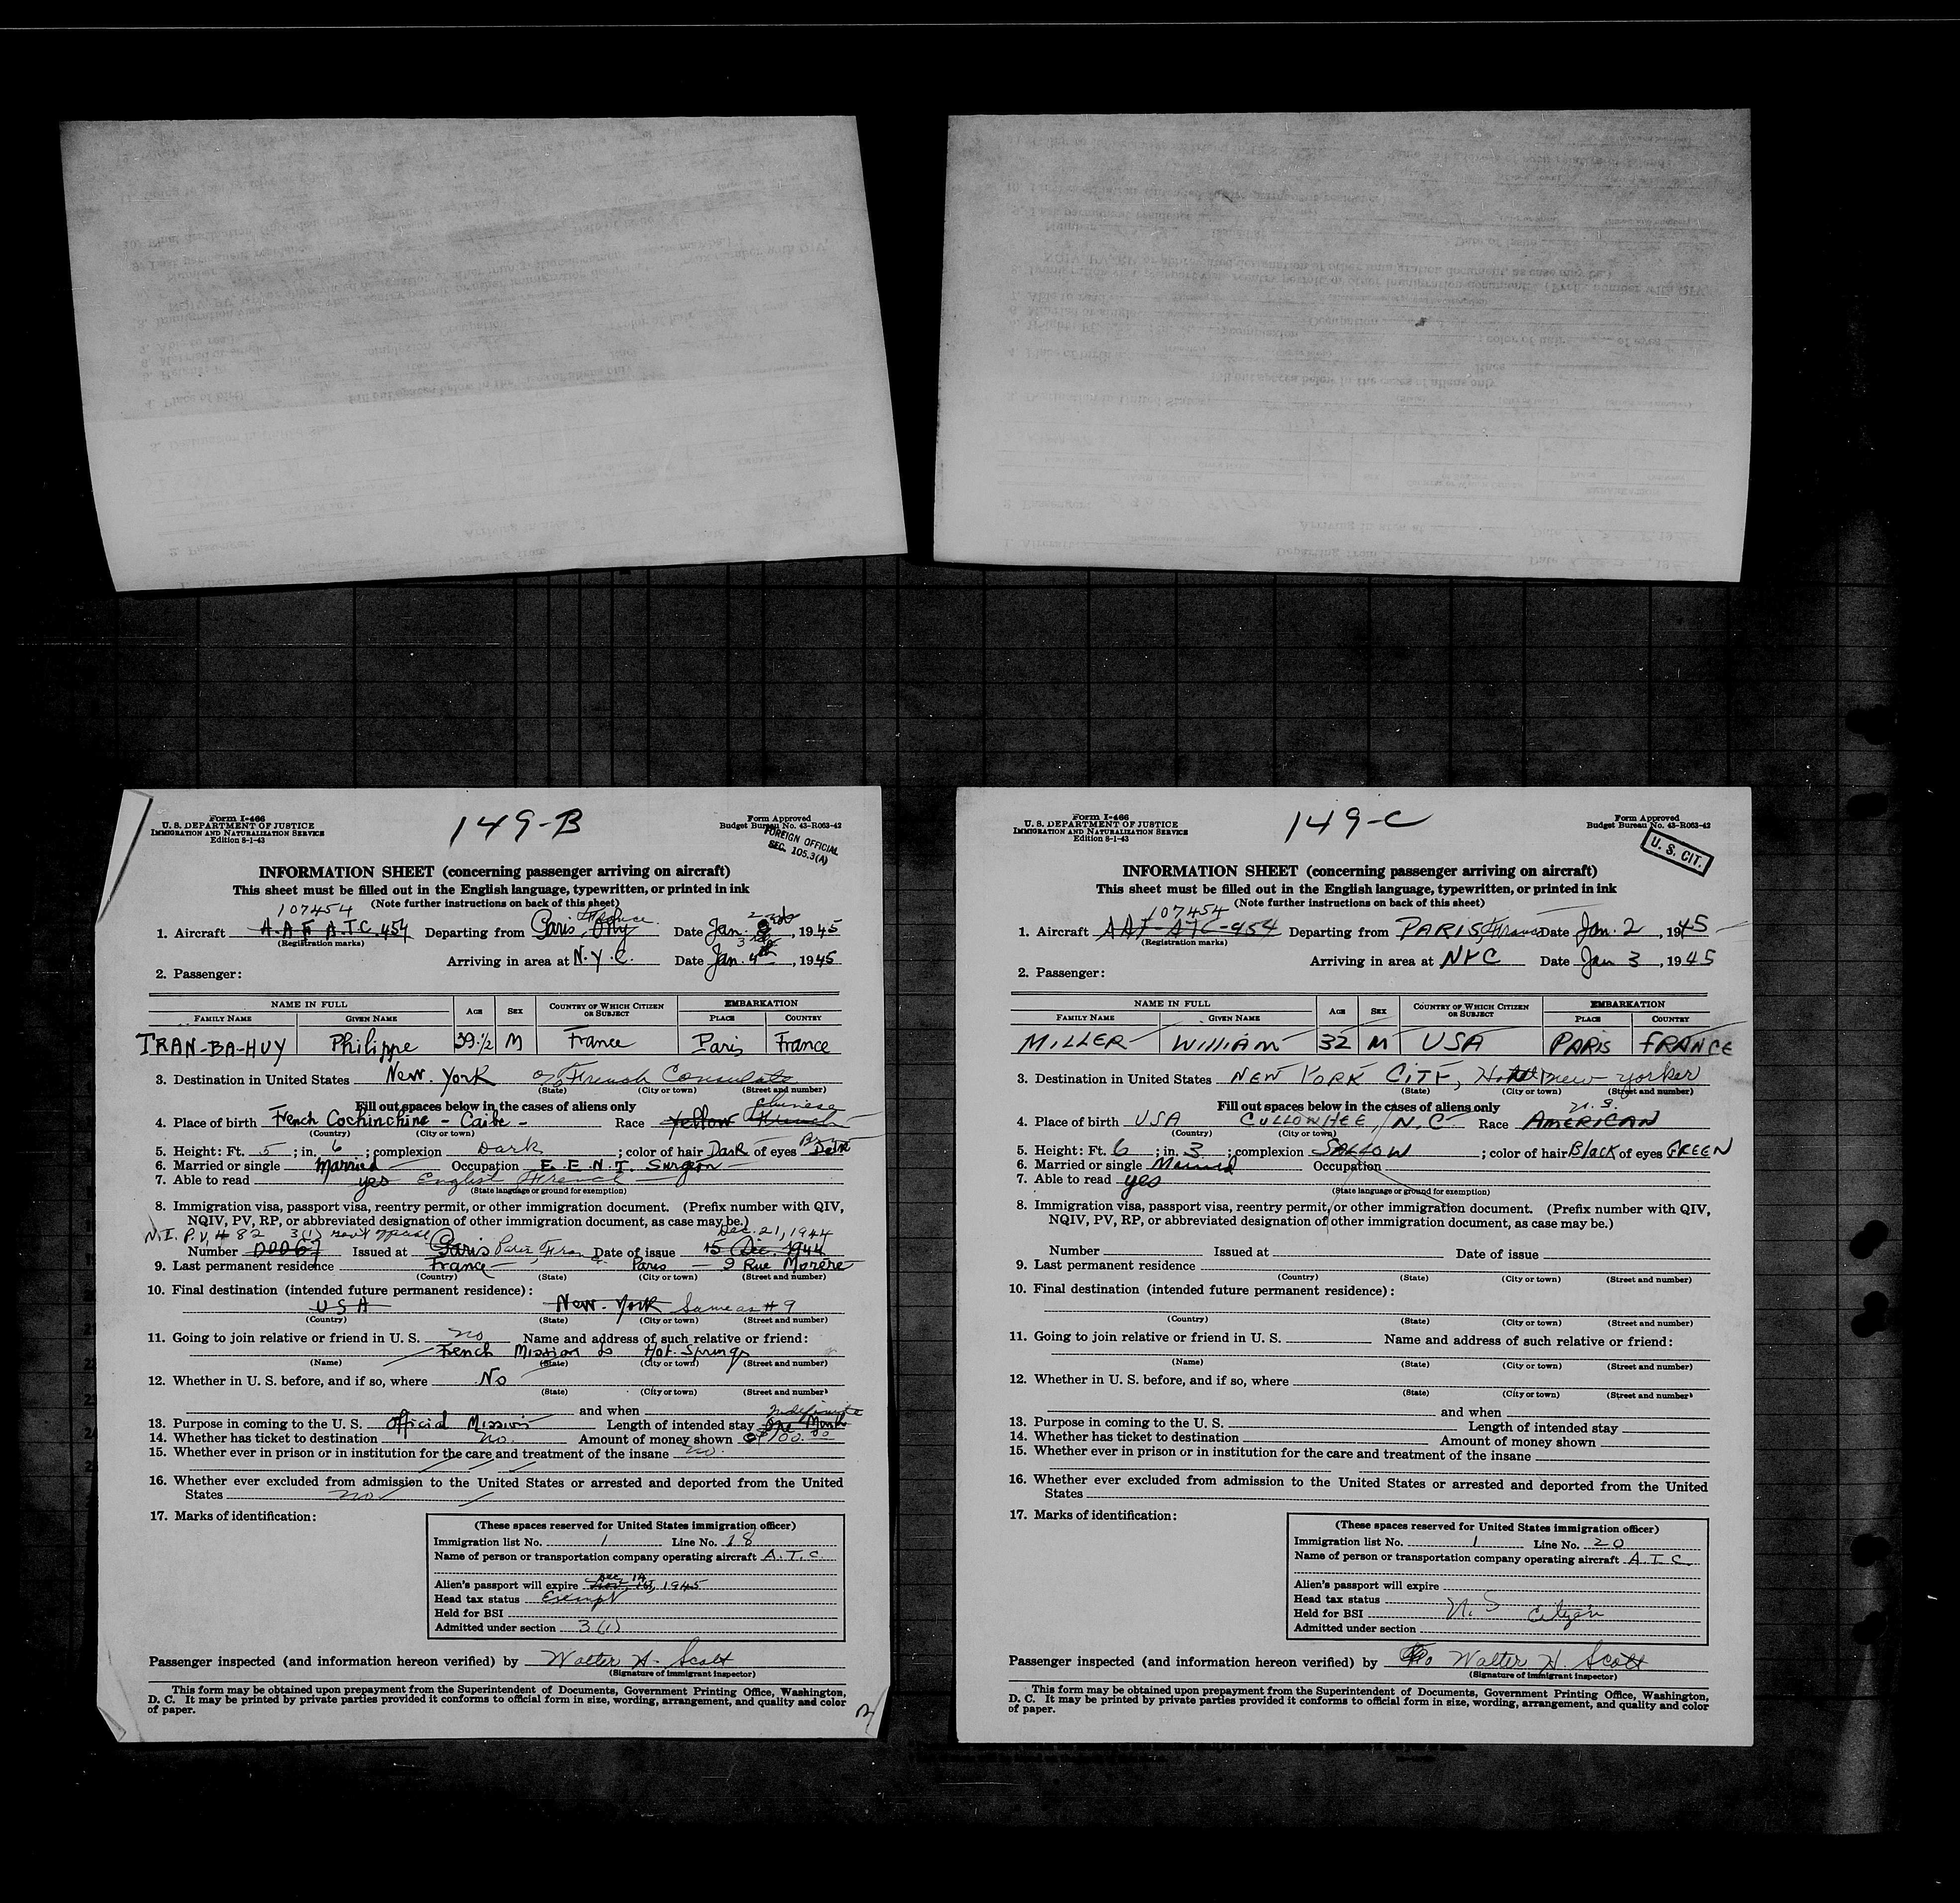 Form I-466
U. S. DEPARTMENT OF JUSTICE
IMMIGRATION AND NATURALIZATION SERVICE
Edition 8-1-43
149-B
Form Approved
Budget Bureau No. 43-R063-42
FOREIGN OFFICIAL
SEC. 105.3(A)
INFORMATION SHEET (concerning passenger arriving on aircraft)
This sheet must be filled out in the English language, typewritten, or printed in ink
(Note further instructions on back of this sheet)
107454
1. Aircraft A.A.F A.T.C. 454 Departing from Paris, Orly France Date Jan. 2nd, 1945
(Registration marks)
Arriving in area at N.Y.C. Date Jan. 4th 3rd, 1945
2. Passenger:
NAME IN FULL AGE SEX COUNTRY OF WHICH CITIZEN OR SUBJECT EMBARKATION
FAMILY NAME GIVEN NAME PLACE COUNTRY
TRAN-BA-HUY Philippe 39 1/2 M France Paris France
3. Destination in United States New. York % French Consulate
(State) (City or town) (Street and number)
Fill out spaces below in the cases of aliens only
4. Place of birth French Cochinchine - Caibe - Race Yellow French Chinese
(Country) (City or town)
5. Height: Ft. 5; in. 6; complexion Dark; color of hair Dark of eyes Dark
6. Married or single Married Occupation E.E.N.T. Surgeon
7. Able to read yes English French
(State language or ground for exemption)
8. Immigration visa, passport visa, reentry permit, or other immigration document. (Prefix number with QIV,
NQIV, PV, RP, or abbreviated designation of other immigration document, as case may be.)
N.I. P.V. # 82 3(1) Dec. 21, 1944
Number Issued at Paris Paris Fran Date of issue 15 Dec. 1944
9. Last permanent residence France Paris - 9 Rue Morère
(Country) (State) (City or town) (Street and number)
10. Final destination (intended future permanent residence):
USA New-York Same as # 9
(Country) (State) (City or town) (Street and number)
11. Going to join relative or friend in U. S. no Name and address of such relative or friend:
French Mission to Hot. Springs
(Name) (State) (City or town) (Street and number)
12. Whether in U. S. before, and if so, where No
(State) (City or town) (Street and number)
and when
13. Purpose in coming to the U. S. Official Mission Length of intended stay One Month Indefinite
14. Whether has ticket to destination no. Amount of money shown $100.00
15. Whether ever in prison or in institution for the care and treatment of the insane no.
16. Whether ever excluded from admission to the United States or arrested and deported from the United
States no
17. Marks of identification:
(These spaces reserved for United States immigration officer)
Immigration list No. 1 Line No. 18
Name of person or transportation company operating aircraft A.T.C.
Alien's passport will expire Dec 14, 1945
Head tax status Exempt
Held for BSI
Admitted under section 3(1)
Passenger inspected (and information hereon verified) by Walter H. Scott
(Signature of immigrant inspector)
This form may be obtained upon prepayment from the Superintendent of Documents, Government Printing Office, Washington,
D. C. It may be printed by private parties provided it conforms to official form in size, wording, arrangement, and quality and color
of paper.
Form I-466
U. S. DEPARTMENT OF JUSTICE
IMMIGRATION AND NATURALIZATION SERVICE
Edition 8-1-43
149-C
Form Approved
Budget Bureau No. 43-R063-42
U. S. CIT.
INFORMATION SHEET (concerning passenger arriving on aircraft)
This sheet must be filled out in the English language, typewritten, or printed in ink
(Note further instructions on back of this sheet)
107454
1. Aircraft AAF-ATC-454 Departing from PARIS, France Date Jan. 2, 1945
(Registration marks)
Arriving in area at NYC Date Jan 3, 1945
2. Passenger:
NAME IN FULL AGE SEX COUNTRY OF WHICH CITIZEN OR SUBJECT EMBARKATION
FAMILY NAME GIVEN NAME PLACE COUNTRY
MILLER WILLIAM 32 M USA PARIS FRANCE
3. Destination in United States NEW YORK CITY, Hotel new yorker
(State) (City or town) (Street and number)
Fill out spaces below in the cases of aliens only
U. S.
4. Place of birth USA CULLOWHEE N.C. Race AMERICAN
(Country) (City or town)
5. Height: Ft. 6; in. 3; complexion SALLOW; color of hair Black of eyes GREEN
6. Married or single Married Occupation
7. Able to read yes
(State language or ground for exemption)
8. Immigration visa, passport visa, reentry permit, or other immigration document. (Prefix number with QIV,
NQIV, PV, RP, or abbreviated designation of other immigration document, as case may be.)
Number Issued at Date of issue
9. Last permanent residence
(Country) (State) (City or town) (Street and number)
10. Final destination (intended future permanent residence):
(Country) (State) (City or town) (Street and number)
11. Going to join relative or friend in U. S. Name and address of such relative or friend:
(Name) (State) (City or town) (Street and number)
12. Whether in U. S. before, and if so, where
(State) (City or town) (Street and number)
and when
13. Purpose in coming to the U. S. Length of intended stay
14. Whether has ticket to destination Amount of money shown
15. Whether ever in prison or in institution for the care and treatment of the insane
16. Whether ever excluded from admission to the United States or arrested and deported from the United
States
17. Marks of identification:
(These spaces reserved for United States immigration officer)
Immigration list No. 1 Line No. 20
Name of person or transportation company operating aircraft A.T.C.
Alien's passport will expire
Head tax status
Held for BSI U. S Citizen
Admitted under section
Passenger inspected (and information hereon verified) by Walter H. Scott
(Signature of immigrant inspector)
This form may be obtained upon prepayment from the Superintendent of Documents, Government Printing Office, Washington,
D. C. It may be printed by private parties provided it conforms to official form in size, wording, arrangement, and quality and color
of paper.